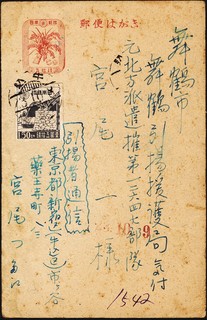 郵便はがき
舞鶴市
舞鶴引揚援護局気付
元北方派遣 第一六四七部隊
宮尾一様
引揚者通信
東京都新宿区牛込市ヶ谷
薬王寺町
宮尾つ
1542